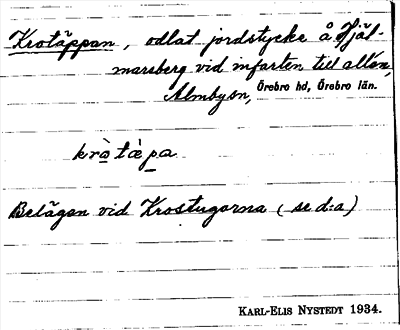 Krotäppan, odlat jordstycke å Hjäl-
marsberg vid infarten till allén,
Almbysn, Örebro hd, Örebro län.
kròtàpa
Belägen vid Krostugorna (se d:a)
KARL-ELIS NYSTEDT 1934.